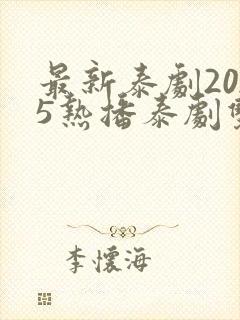 最新泰劇20
5熱播泰劇
李懷海